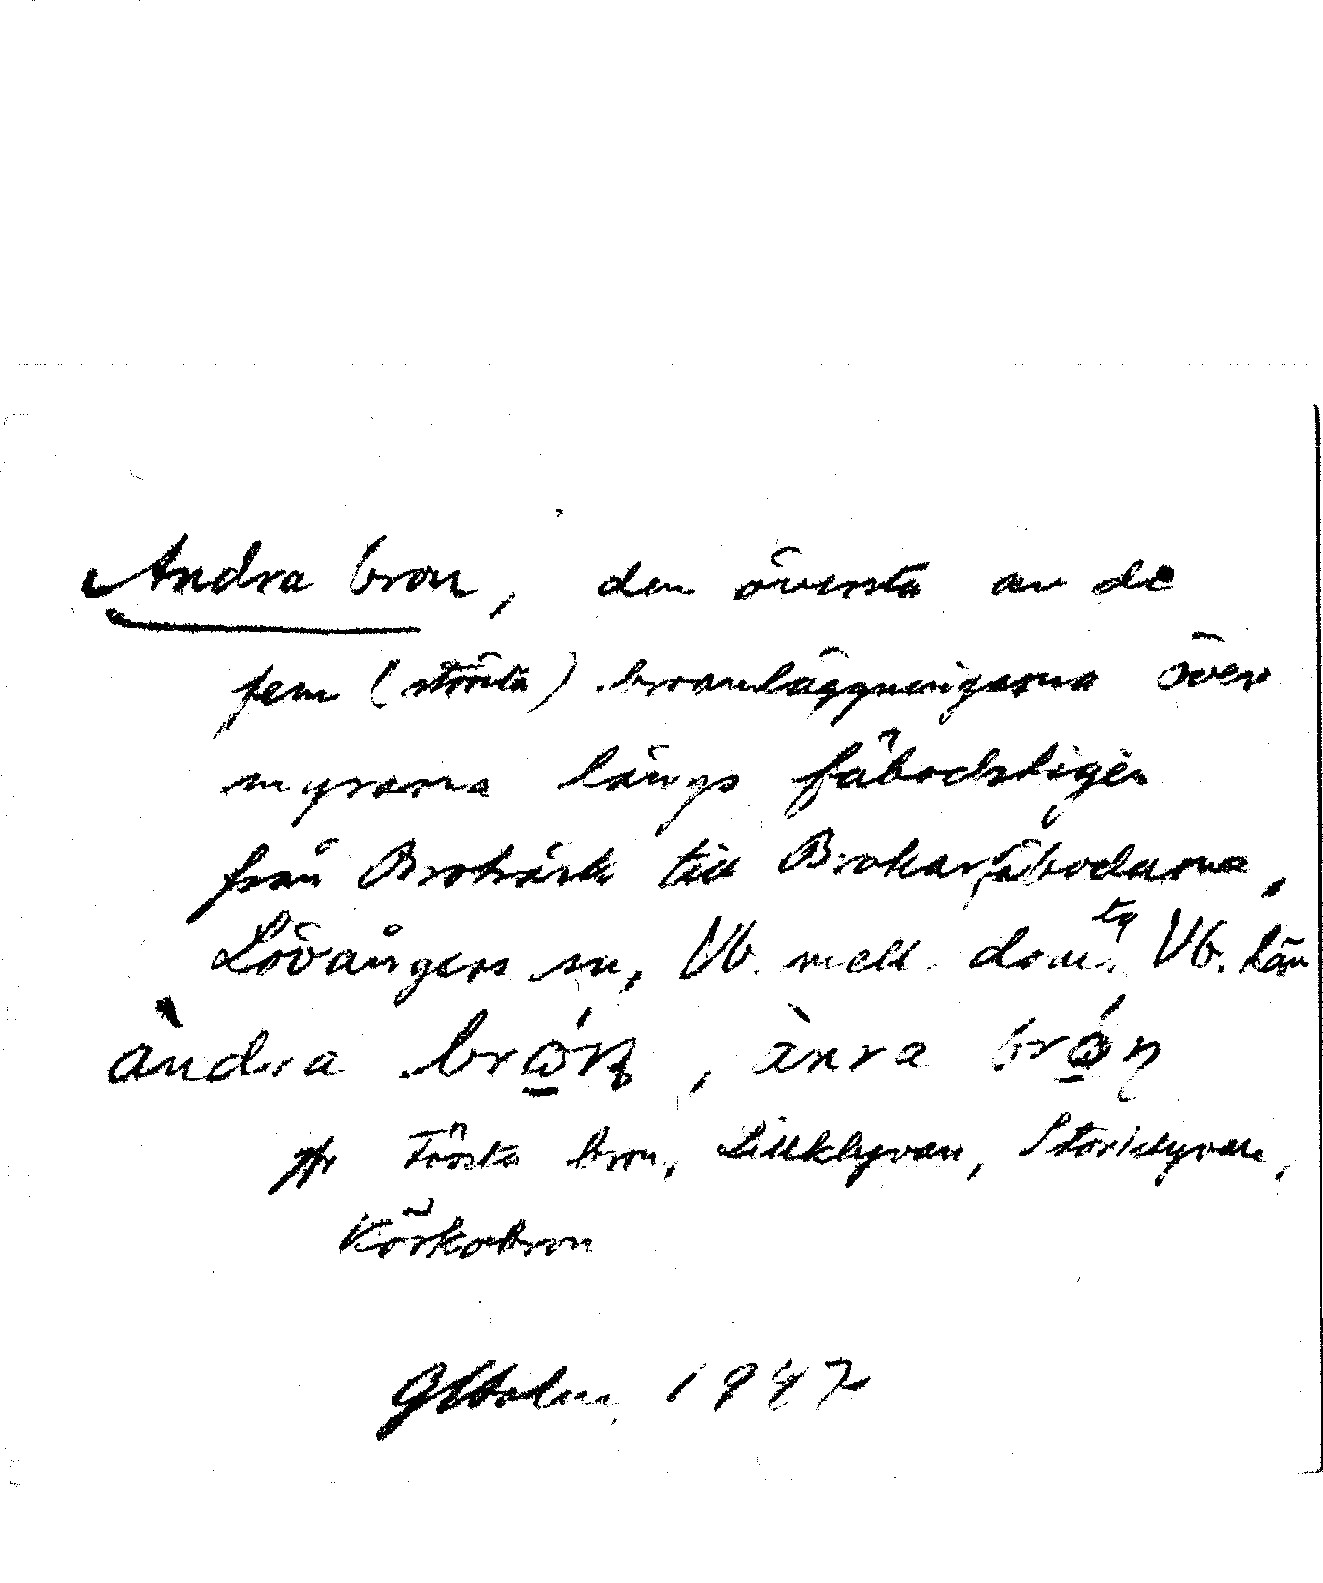 Andra bron, den översta av de
fem (största) broanläggningarna över
myrarna längs fäbodstigen
från Broträsk till Brokarfäbodarna,
Lövångers sn, Vb. mell. dom. Vb. län
àndra brǫ́n, ànra brǫ́n
jfr Första bron, Lillklyvan, Storklyvan,
Körkobron
GHolm 1947